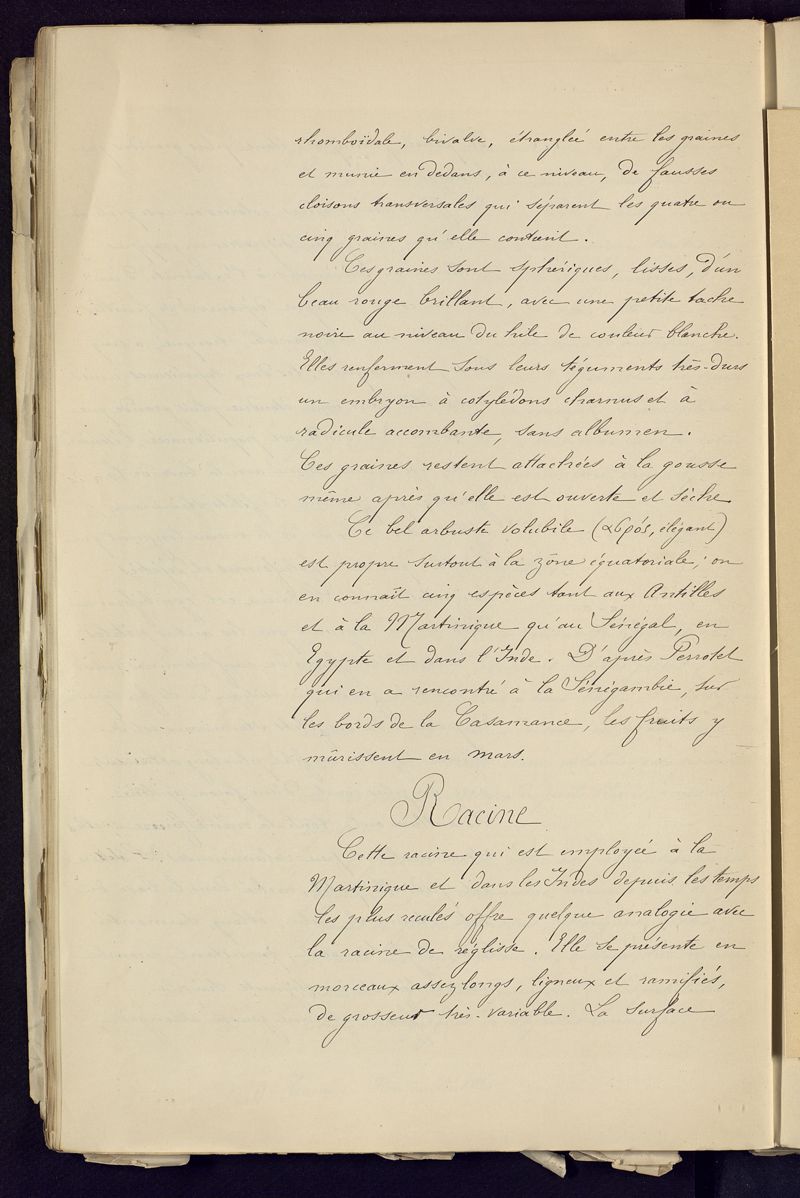 rhomboïdale, bivalve, étranglée entre les graines
et munie en dedans, à ce niveau, de fausses
cloisons transversales qui séparent les quatre ou
cinq graines qu'elle contient.
Ces graines sont sphériques, lisses, d'un
beau rouge brillant, avec une petite tache
noire au niveau du hile de couleur blanche.
Elles renferment sous leurs téguments très-durs
un embryon à cotylédons charnus et à
radicule accombante, sans albumen.
Ces graines restent attachées à la gousse
même après qu'elle est ouverte et sèche
Ce bel arbuste volubile (αβρός, élégant)
est propre surtout à la zône équatoriale; on
en connaît cinq espèces tant aux Antilles
et à la Martinique qu'au Sénégal, en
Egypte et dans l'Inde. D'après Perrotet
qui en a rencontré à la Sénégambie, sur
les bords de la Casamance, les fruits y
mûrissent en mars.
Racine
Cette racine qui est employée à la
Martinique et dans les Indes depuis les temps
les plus reculés offre quelque analogie avec
la racine de réglisse. Elle se présente en
morceaux assez longs, ligneux et ramifiés,
de grosseur très-variable. La surface